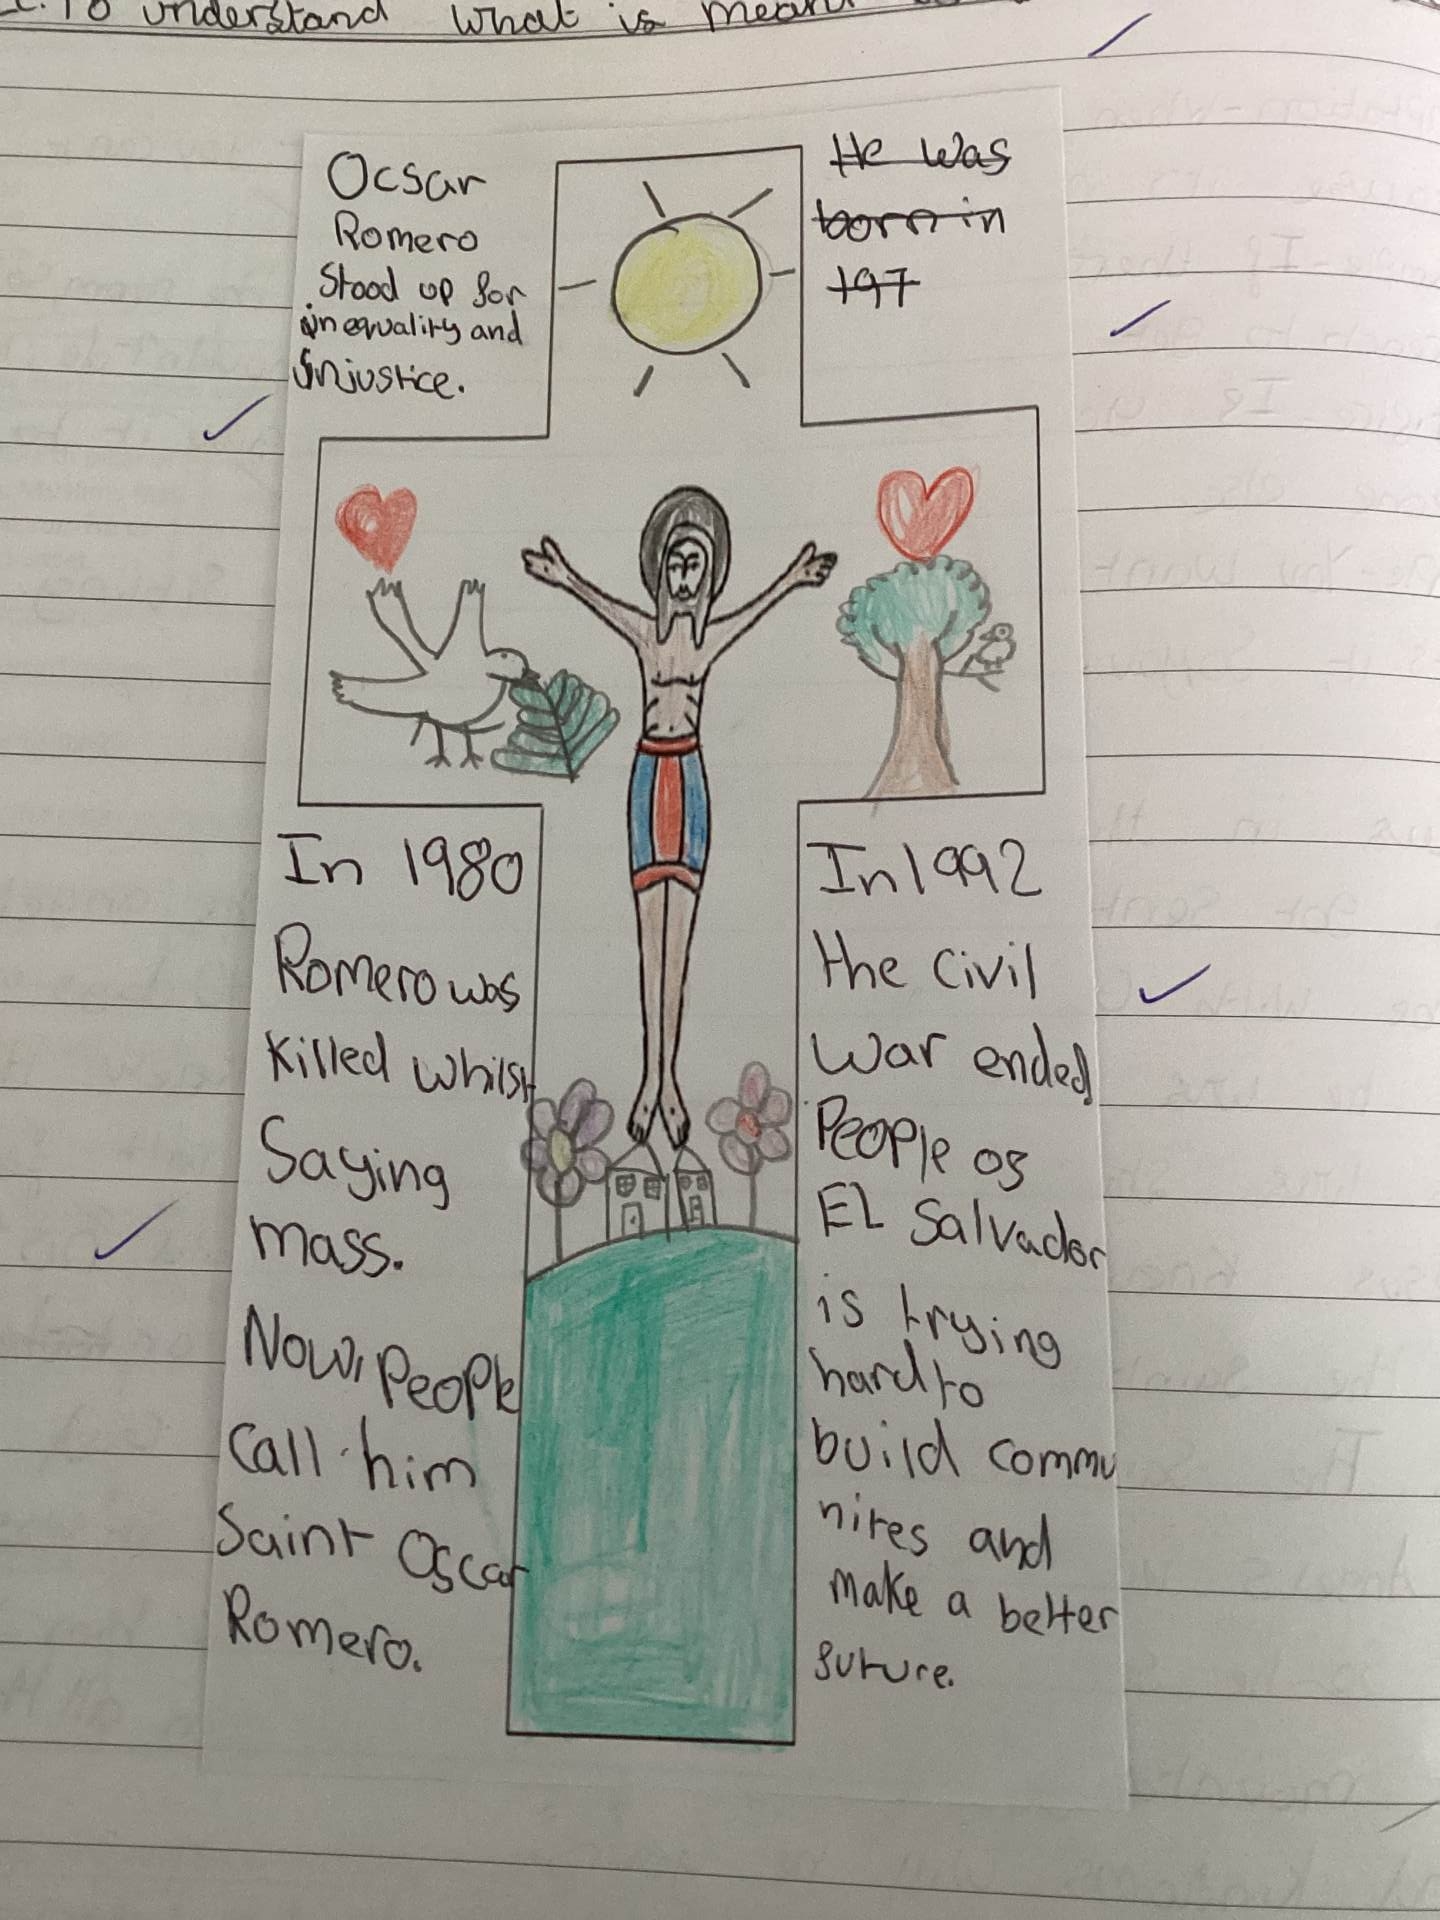 To understand what is meant
Ocsar
Romero
Stood up for
inequality and
injustice.
He was
born in
197
In 1980
Romero was
killed whilst
Saying
mass.
Now, People
Call him
Saint Oscar
Romero.
In 1992
the civil
war ended
People of
EL Salvador
is trying
hard to
build commu
nites and
make a better
future.